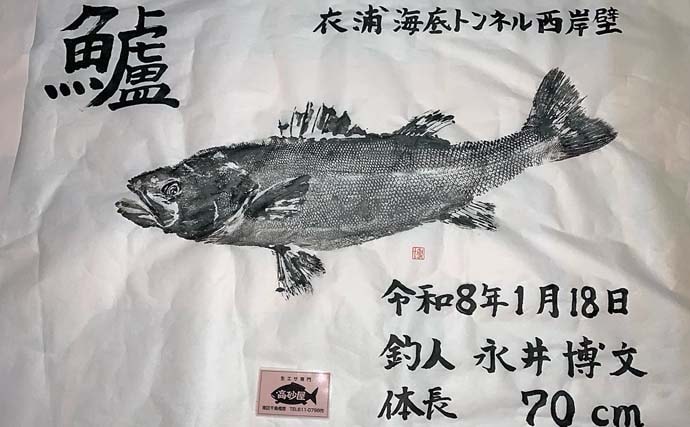 鱸
衣浦海底トンネル西岸壁
令和8年1月18日
釣人 永井博文
体長 70cm
生エサ専門
高砂屋